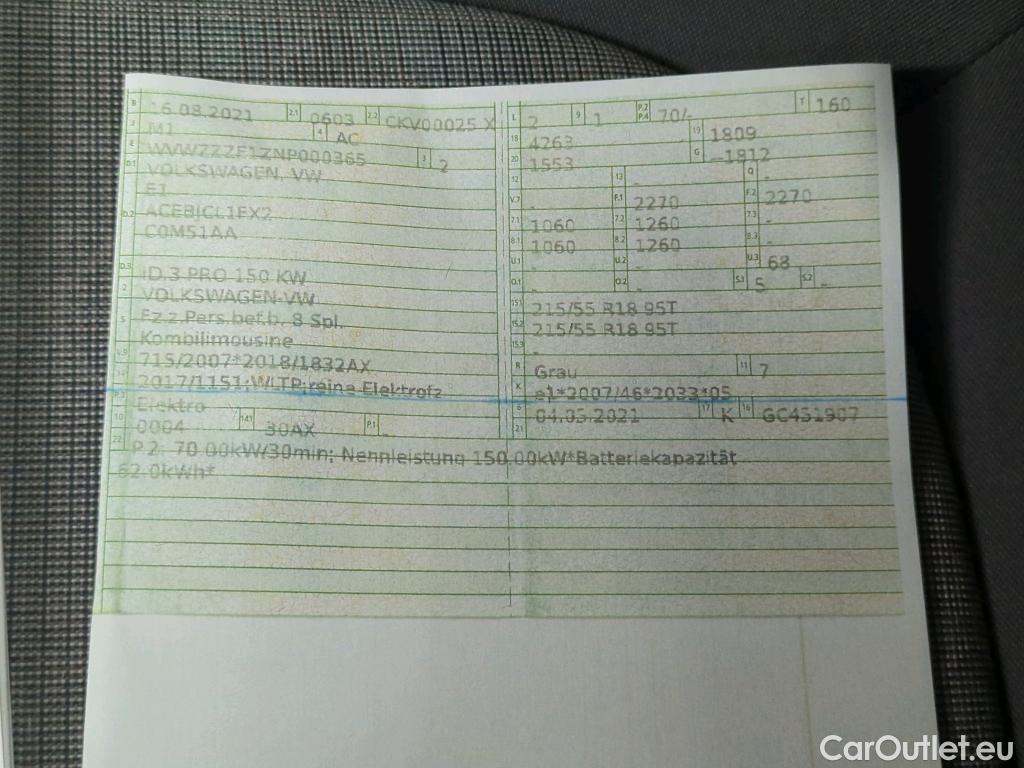 B 16.08.2021 2.1 0603 2.2 CKV00025 X
J M1 4 AC
E WVWZZZE1ZNP000365 3 2
D.1 VOLKSWAGEN, VW
E1
D.2 ACEBJCL1FX2
C0M51AA
D.3 ID.3 PRO 150 KW
2 VOLKSWAGEN-VW
5 Fz.z.Pers.bef.b. 8 Spl.
Kombilimousine
V.9 715/2007*2018/1832AX
14 2017/1151;WLTP;reine Elektrofz
P.3 Elektro
10 0004 14.1 30AX P.1 -
L 2 9 1 P.2 P.4 70/- T 160
18 4263 19 1809
20 1553 G --1812
12 - 13 - Q -
V.7 - F.1 2270 F.2 2270
7.1 1060 7.2 1260 7.3 -
8.1 1060 8.2 1260 8.3 -
U.1 - U.2 - U.3 68
O.1 - O.2 - S.1 5 S.2 -
15.1 215/55 R18 95T
15.2 215/55 R18 95T
15.3 -
R Grau 11 7
K e1*2007/46*2033*05
6 04.05.2021 17 K 16 GC451907
21
22 P.2: 70.00kW/30min; Nennleistung 150.00kW*Batteriekapazität
62.0kWh*
CarOutlet.eu